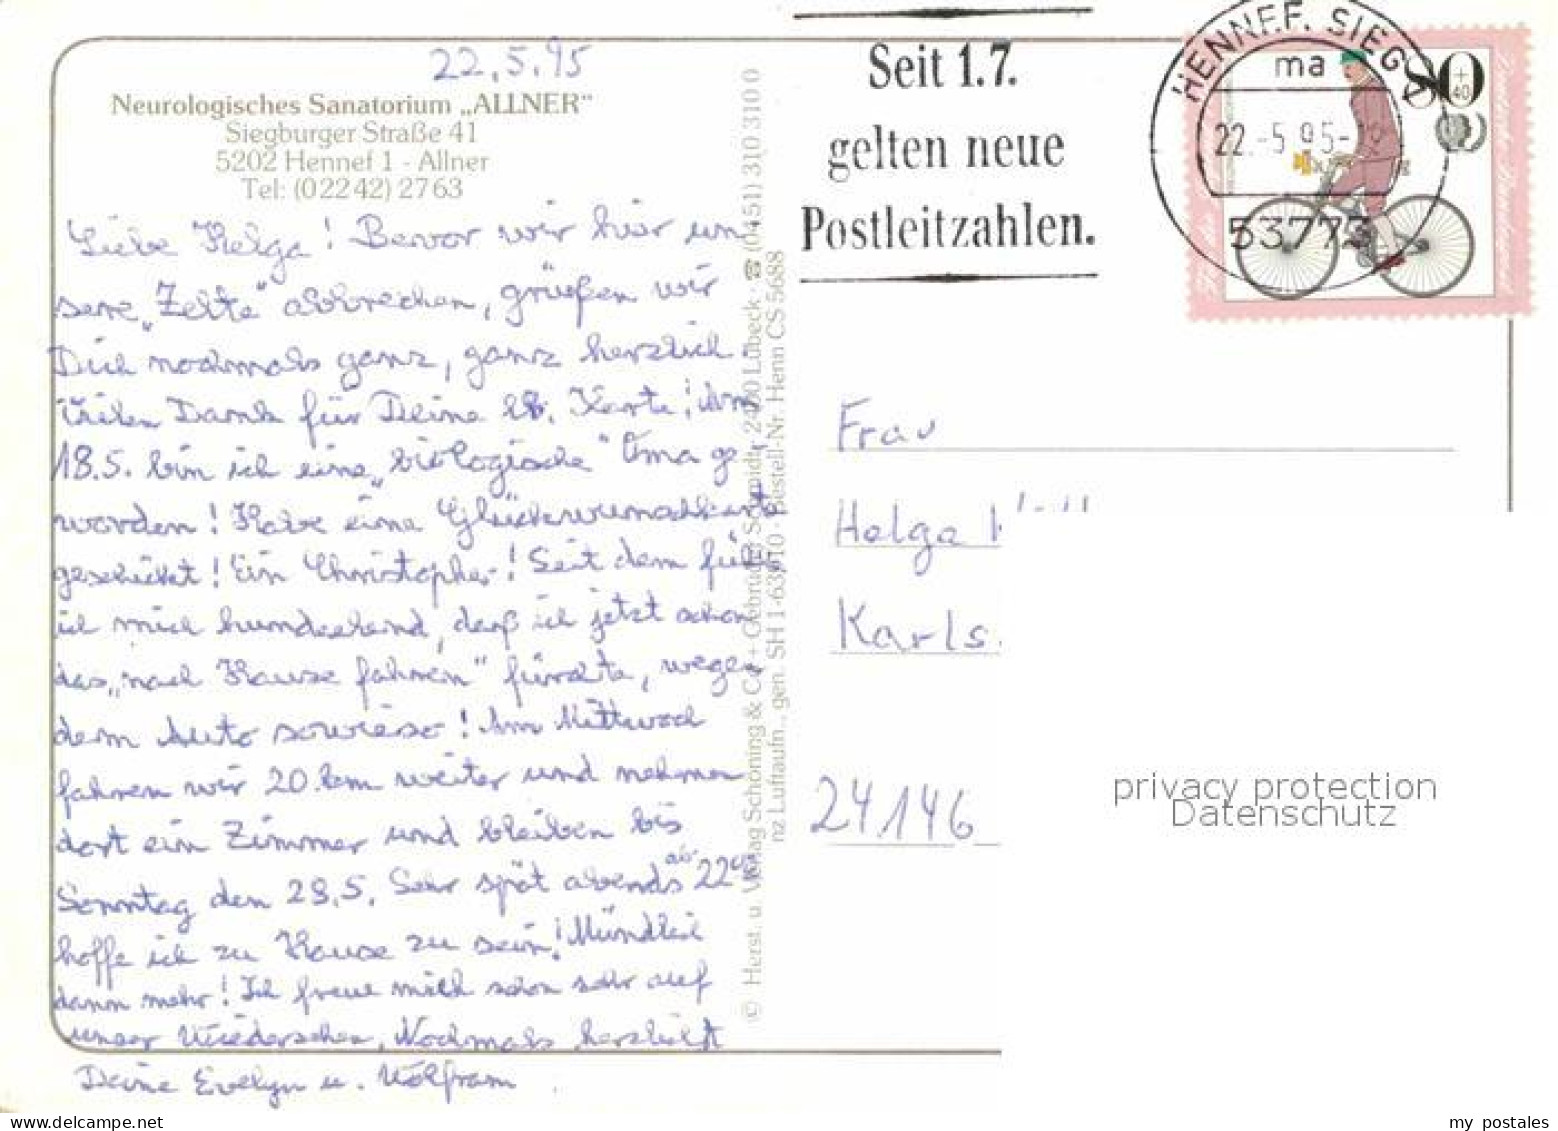 22.5.95
Neurologisches Sanatorium „ALLNER"
Siegburger Straße 41
5202 Hennef 1 - Allner
Tel: (02242) 2763
Liebe Helga! Bevor wir hier un
sere „Zelte" abbrechen, grüßen wir
Dich nochmals ganz, ganz herzlich
Vielen Dank für Deine lb. Karte! Am
18.5. bin ich eine „biologische" Oma ge
worden! Habe eine Glückwunschkarte
geschickt! Ein Christopher! Seit dem fühl
ich mich hundeelend, daß ich jetzt schon
das „nach Hause fahren" fürchte, wegen
dem Auto sowieso! Am Mittwoch
fahren wir 20 km weiter und nehmen
dort ein Zimmer und bleiben bis
Sonntag den 28.5. Sehr spät abends ab 22
hoffe ich zu Hause zu sein! Mündlich
dann mehr! Ich freue mich schon sehr auf
unser Wiedersehen. Nochmals herzlichst
Deine Evelyn u. Wolfram
© Herst. u. Verlag Schöning & Co + Gebrüder Schmidt, 2400 Lübeck · ☎ (0451) 310 310 0
nz Luftaufn., gen. SH 1-63910 · Bestell-Nr. Henn CS 5688
Seit 1.7.
gelten neue
Postleitzahlen.
HENNEF, SIEG 1
ma
22.-5.95-
53773
80
+
40
Frau
Helga
Karls
24146
privacy protection
Datenschutz
my postales